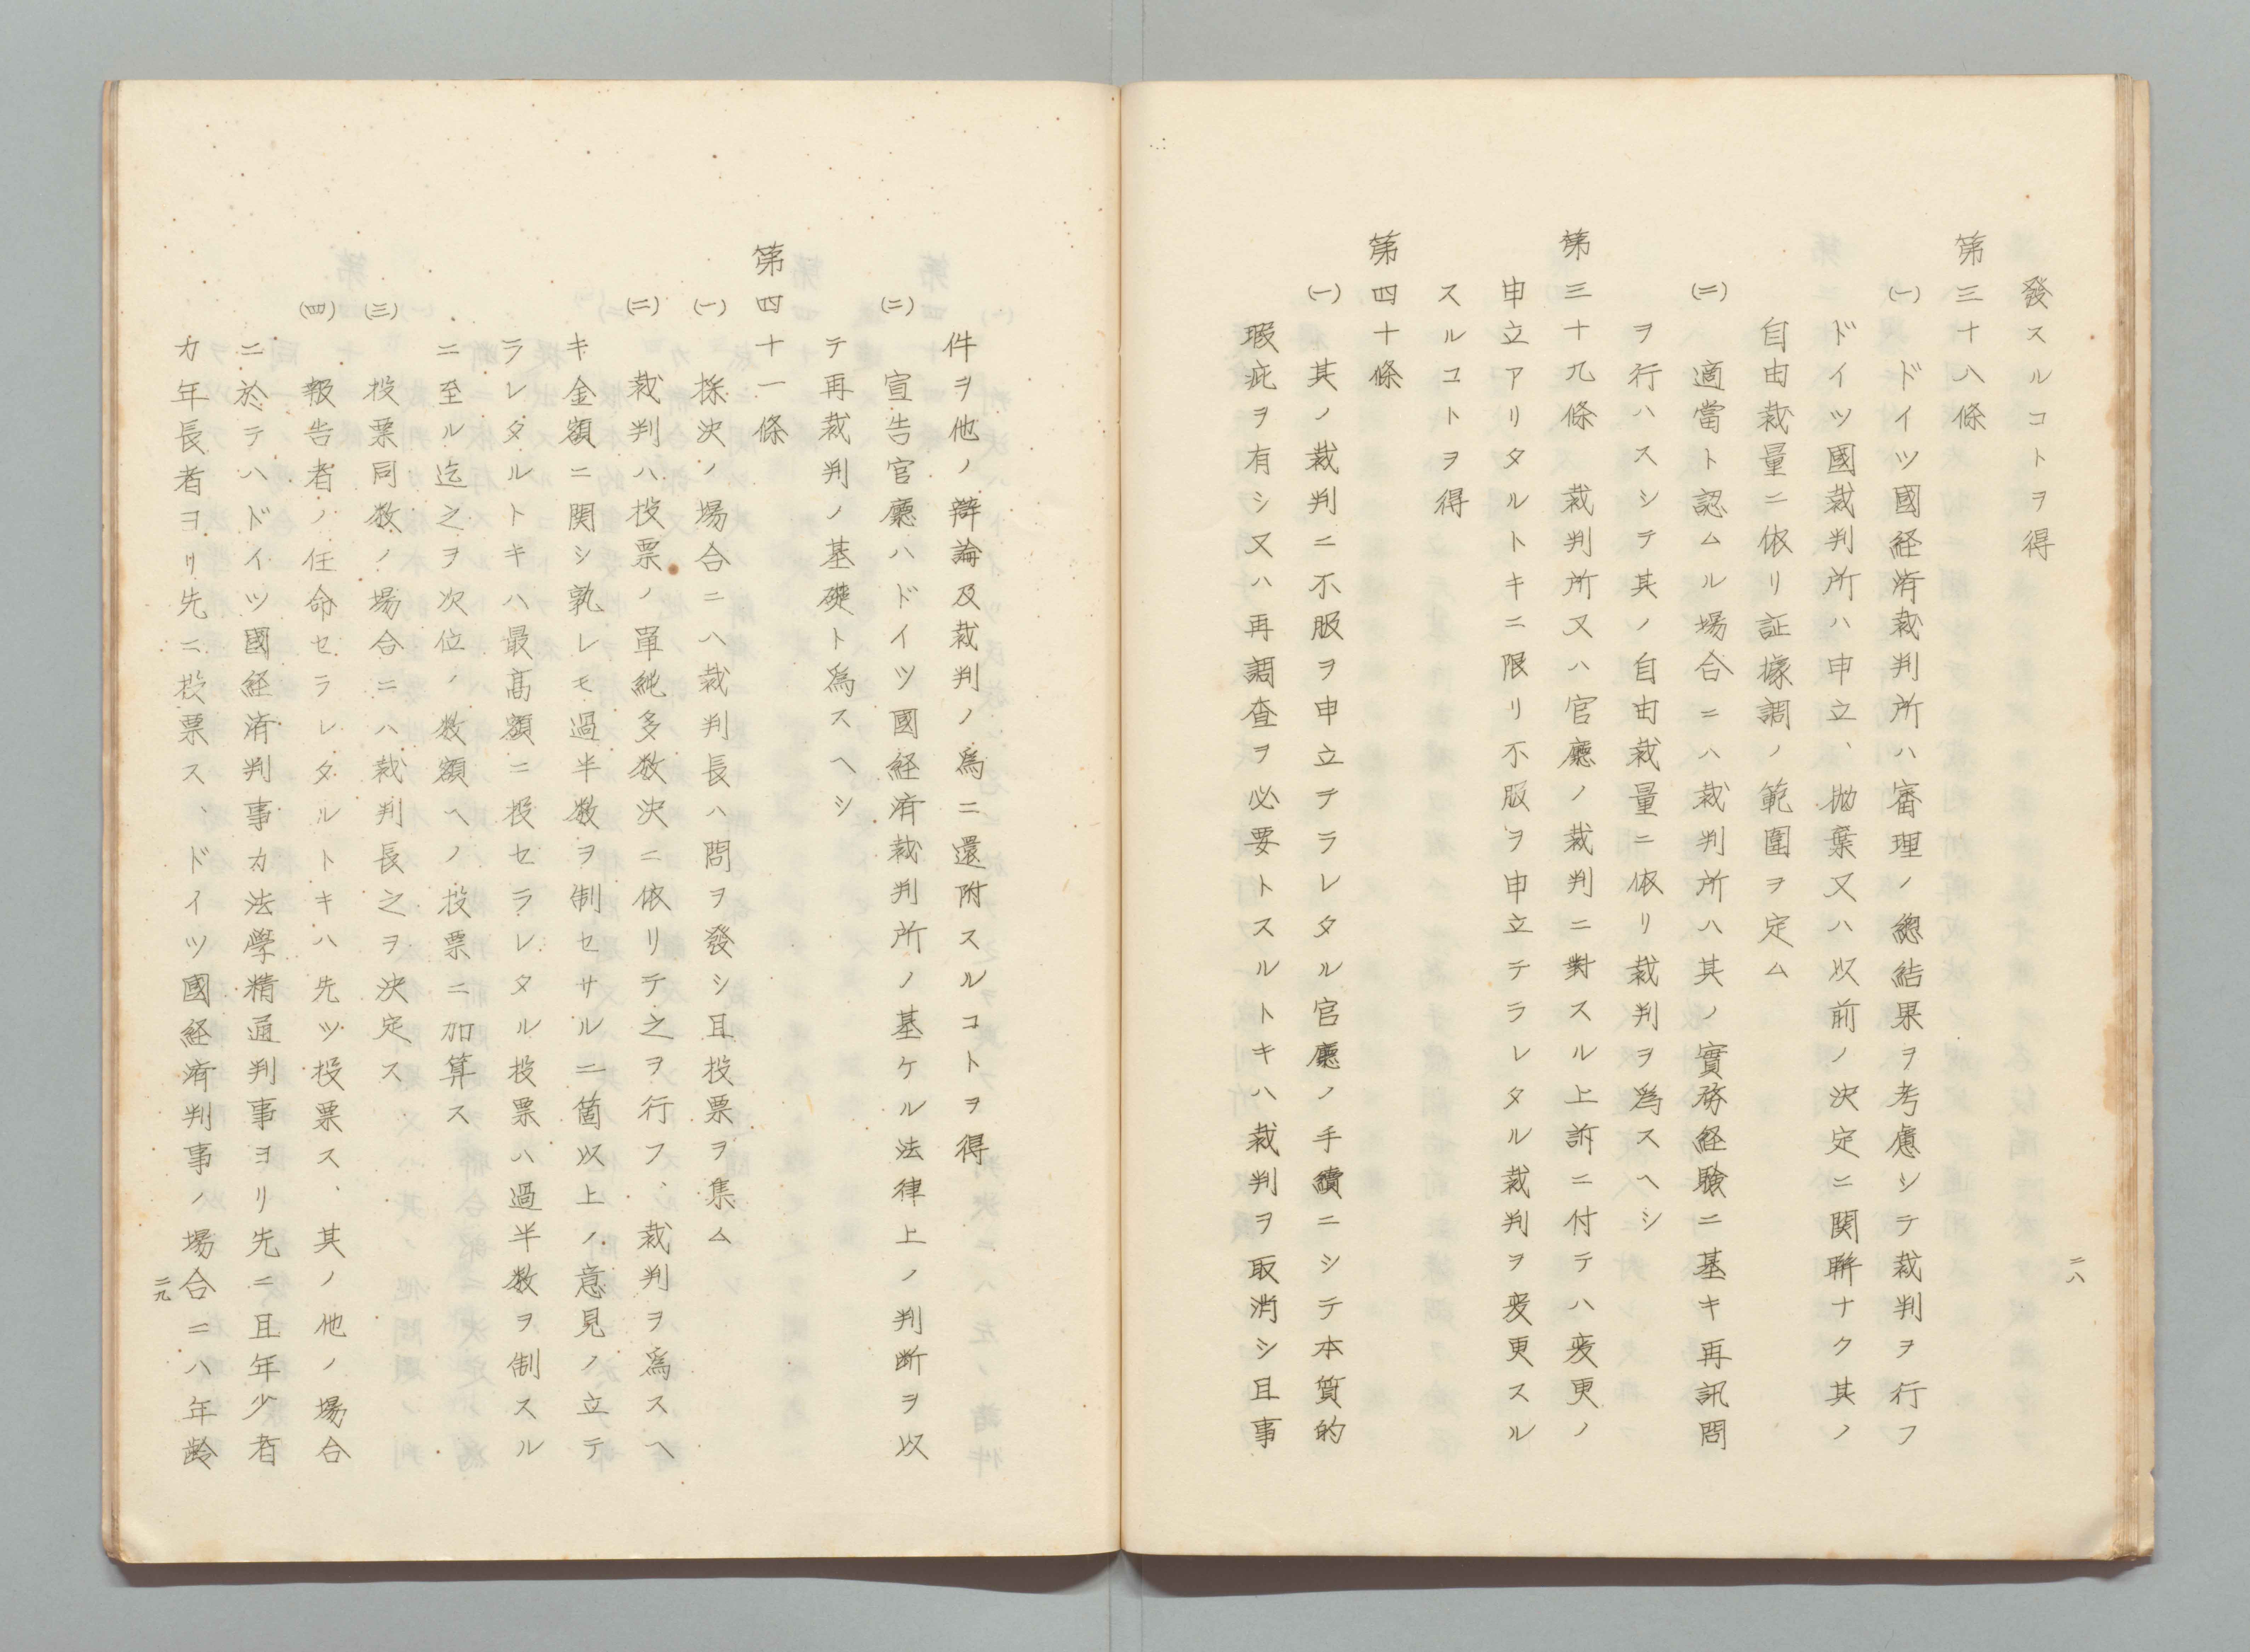 發スルコトヲ得
第三十八條
(一) ドイツ國経済裁判所ハ審理ノ總結果ヲ考慮シテ裁判ヲ行フ
ドイツ國裁判所ハ申立、抛棄又ハ以前ノ決定ニ関聯ナク其ノ
自由裁量ニ依リ証據調ノ範囲ヲ定ム
(二) 適當ト認ムル場合ニハ裁判所ハ其ノ實務経験ニ基キ再訊問
ヲ行ハスシテ其ノ自由裁量ニ依リ裁判ヲ為スヘシ
第三十九條 裁判所又ハ官廳ノ裁判ニ對スル上訴ニ付テハ変更ノ
申立アリタルトキニ限リ不服ヲ申立テラレタル裁判ヲ変更スル
スルコトヲ得
第四十條
(一) 其ノ裁判ニ不服ヲ申立テラレタル官廳ノ手續ニシテ本質的
瑕疵ヲ有シ又ハ再調査ヲ必要トスルトキハ裁判ヲ取消シ且事
二八
件ヲ他ノ辯論及裁判ノ為ニ還附スルコトヲ得
(二) 宣告官廳ハドイツ國経済裁判所ノ基ケル法律上ノ判断ヲ以
テ再裁判ノ基礎ト為スヘシ
第四十一條
(一) 採決ノ場合ニハ裁判長ハ問ヲ發シ且投票ヲ集ム
(二) 裁判ハ投票ノ單純多数決ニ依リテ之ヲ行フ、裁判ヲ為スヘ
キ金額ニ関シ孰レモ過半数ヲ制セサル二箇以上ノ意見ノ立テ
ラレタルトキハ最高額ニ投セラレタル投票ハ過半数ヲ制スル
ニ至ル迄之ヲ次位ノ数額ヘノ投票ニ加算ス
(三) 投票同数ノ場合ニハ裁判長之ヲ決定ス
(四) 報告者ノ任命セラレタルトキハ先ツ投票ス、其ノ他ノ場合
ニ於テハドイツ國経済判事カ法學精通判事ヨリ先ニ且年少者
カ年長者ヨリ先ニ投票ス、ドイツ國経済判事ノ場合ニハ年齢
二九